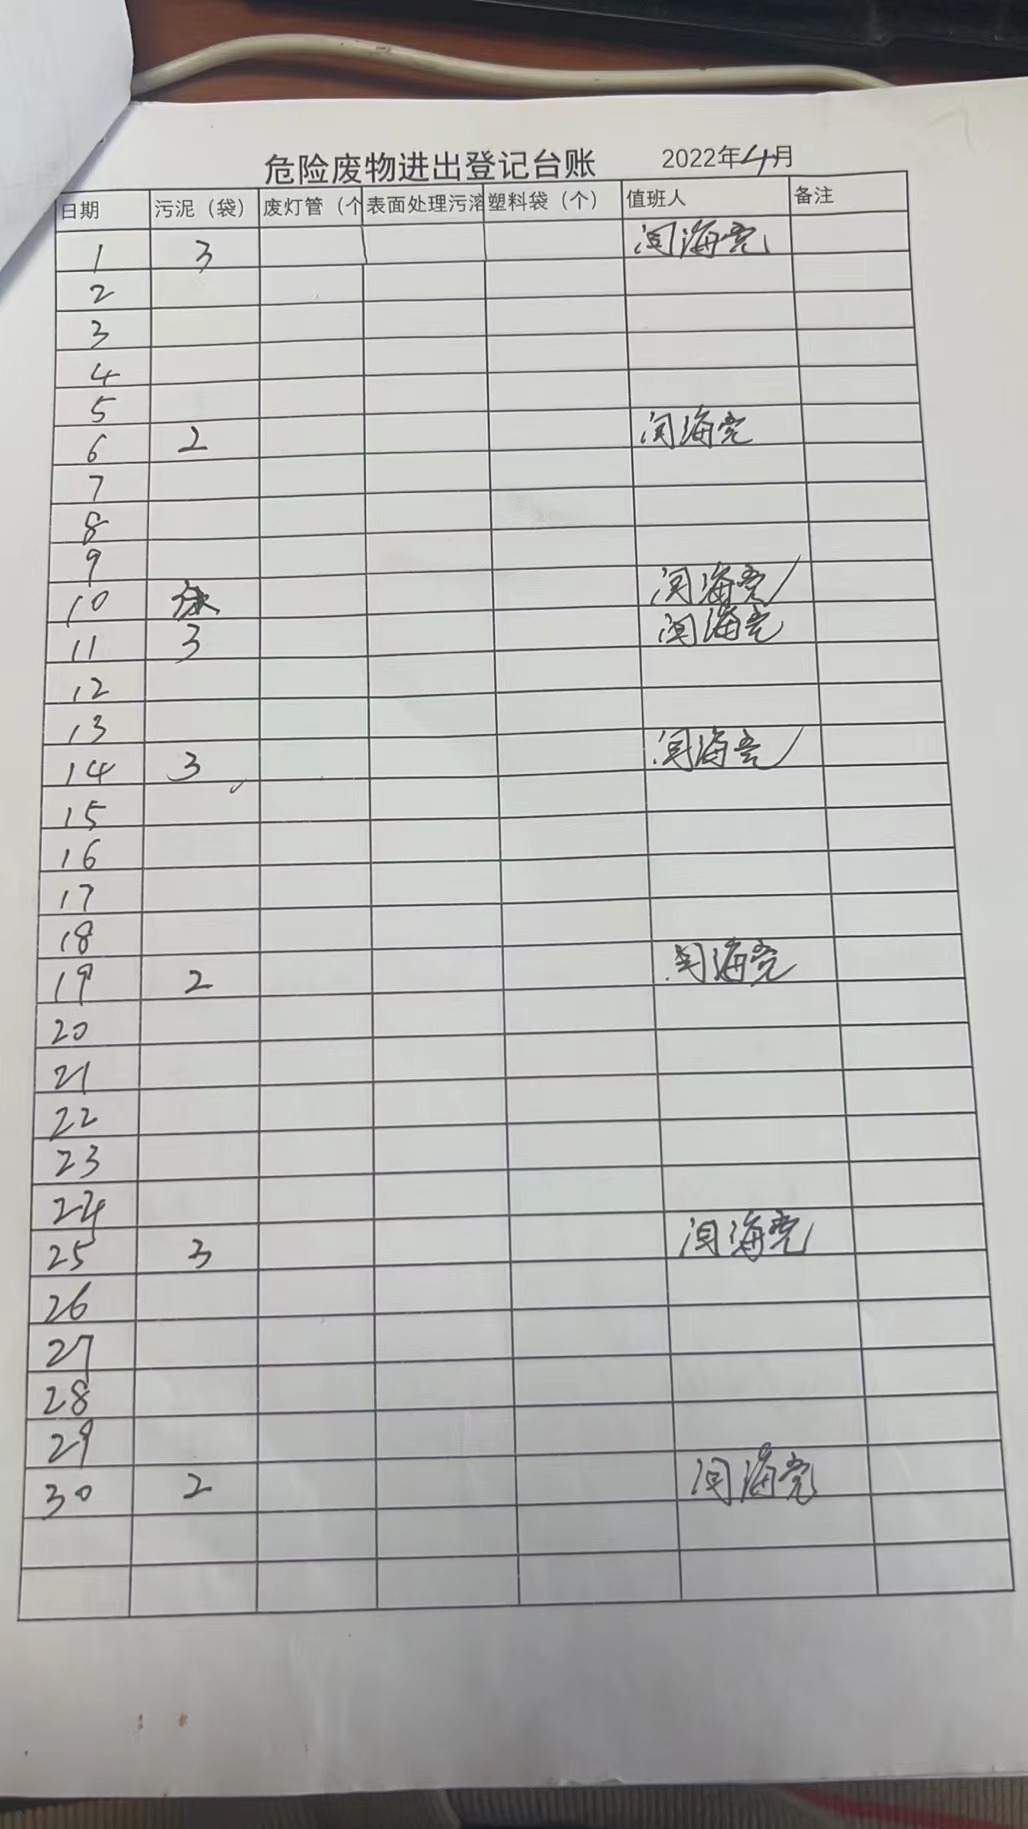 危险废物进出登记台账 2022年4月
日期 污泥（袋） 废灯管（个 表面处理污溶 塑料袋（个） 值班人 备注
1 3 闫海亮
2
3
4
5
6 2 闫海亮
7
8
9
10 闫海亮
11 3 闫海亮
12
13
14 3 闫海亮
15
16
17
18
19 2 闫海亮
20
21
22
23
24
25 3 闫海亮
26
27
28
29
30 2 闫海亮